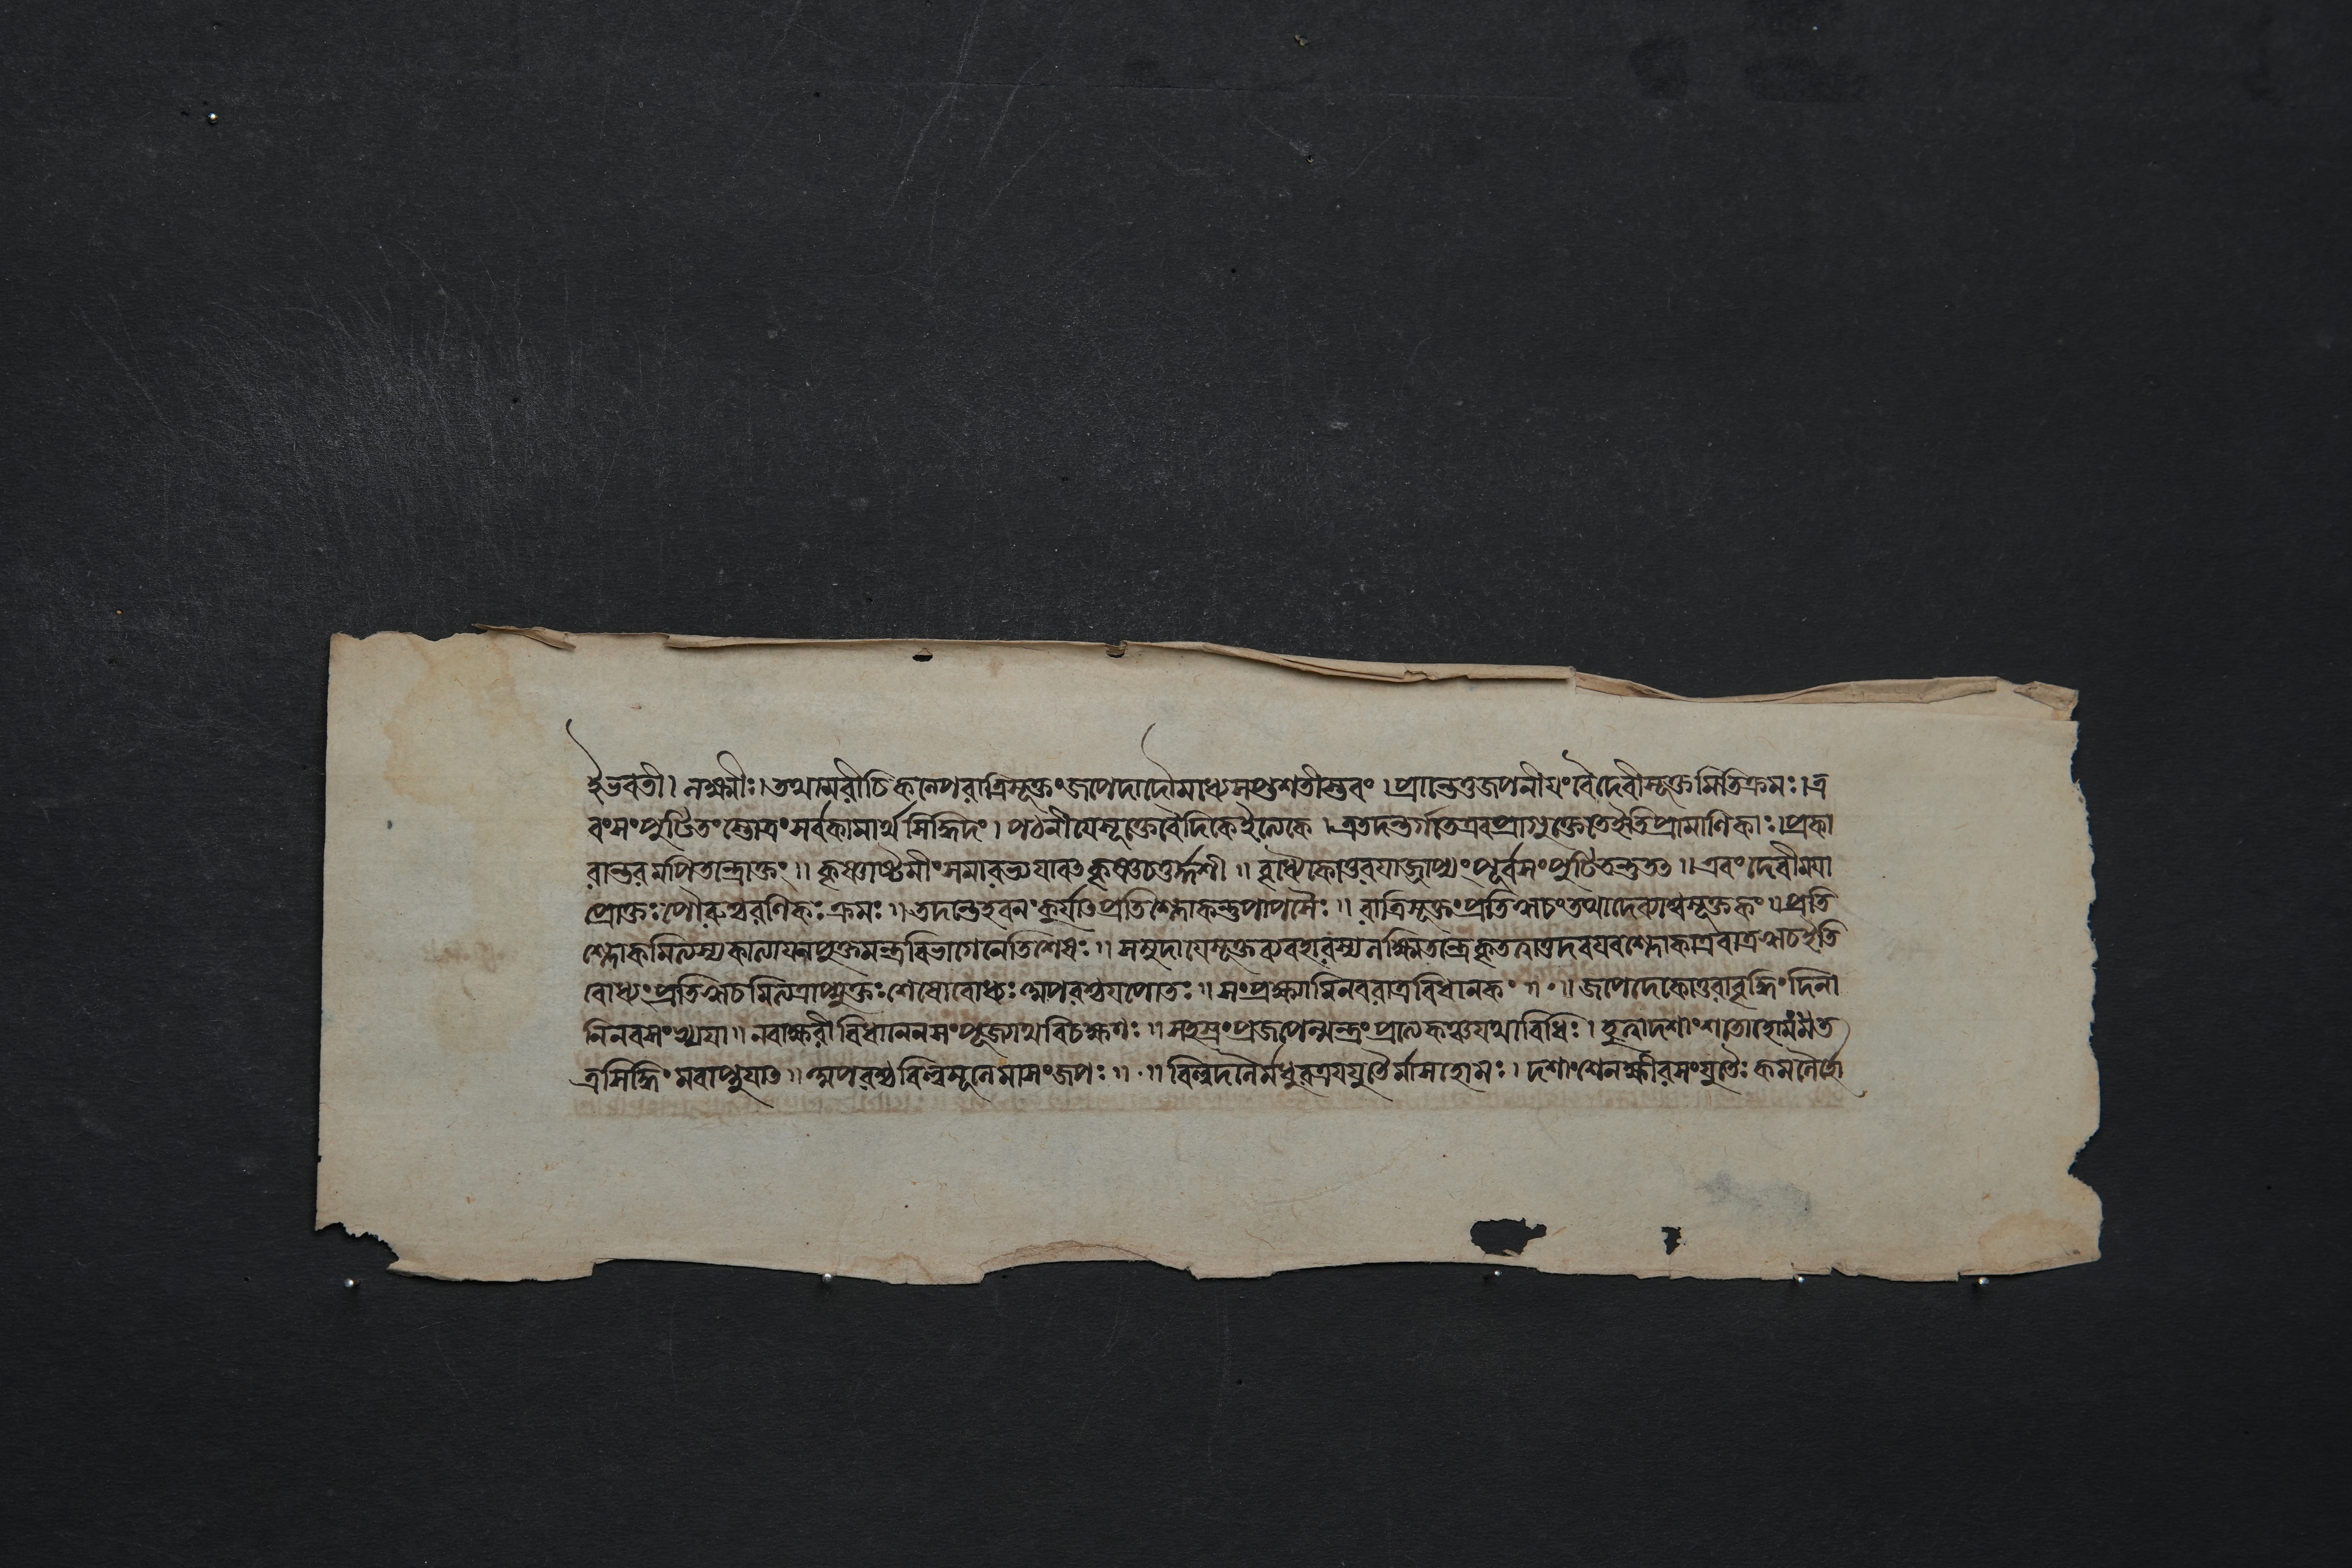 হৈভবতী। লক্ষ্মীঃ। তথামরীচিকল্পেপরাত্রিসূক্তংজপেদাদৌমধ্যেসপ্তশতীস্তবং। প্রান্তেতুজপনীয়ংবৈদেবীসূক্তমিতিক্রমঃ। এ
বংসংপুটিতংস্তোত্রংসর্বকামার্থসিদ্ধিদং। পঠনীয়েসূক্তেবৈদিকেইত্যেকে। এতদন্তর্গতেএবপ্রাগুক্তেতেইতিপ্রামাণিকাঃ। প্রকা
রান্তরমপিতন্ত্রোক্তং॥ কৃষ্ণাষ্টমীংসমারভ্যযাবৎকৃষ্ণচতুর্দ্দশী॥ বৃদ্ধ্যৈকোত্তরয়াজাপ্যংপূর্বসংপুটিতন্তুতৎ॥ এবংদেবীময়া
প্রোক্তঃপৌরশ্চরণিকঃক্রমঃ॥ তদন্তেহবনংকুর্যাৎপ্রতিশ্লোকন্তুপায়সৈঃ॥ রাত্রিসূক্তংপ্রতিঋচংতথাদেব্যাশ্চসূক্তকং॥ প্রতি
শ্লোকমিত্যস্যকাত্যায়নুক্তমন্ত্রবিভাগেনেতিশেষঃ॥ সমুদায়েসূক্তব্যবহারস্যলক্ষ্মীতন্ত্রেকৃতত্বাত্তদবয়বশ্লোকাএবাত্রঋচইতি
বোধ্যংপ্রতিঋচমিত্যত্রাপ্যুক্তঃশেষোবোধ্যঃঅপরশ্চ॥ সংপ্রবক্ষ্যামিনবরাত্রবিধানকং॥॰॥ জপেদেকোত্তরাবৃদ্ধিংদিনা
নিনবসংখ্যয়া॥ নবাক্ষরীবিধানেনসংপূজ্যাথবিচক্ষণঃ॥ সহস্রংপ্রজপেন্মন্ত্রংপ্রত্যেকঞ্চযথাবিধিঃ। হুত্বাদশাংশতোহোমং
ত্রসিদ্ধিংমবাপ্নুয়াৎ॥ অপরশ্চবিল্বমূলেমাসংজপঃ॥॰॥ বিল্বদলৈর্মধুরত্রয়যুতৈর্মাসহোমঃ। দশাংশেনক্ষীরসংযুতৈঃকমলৈর্হো